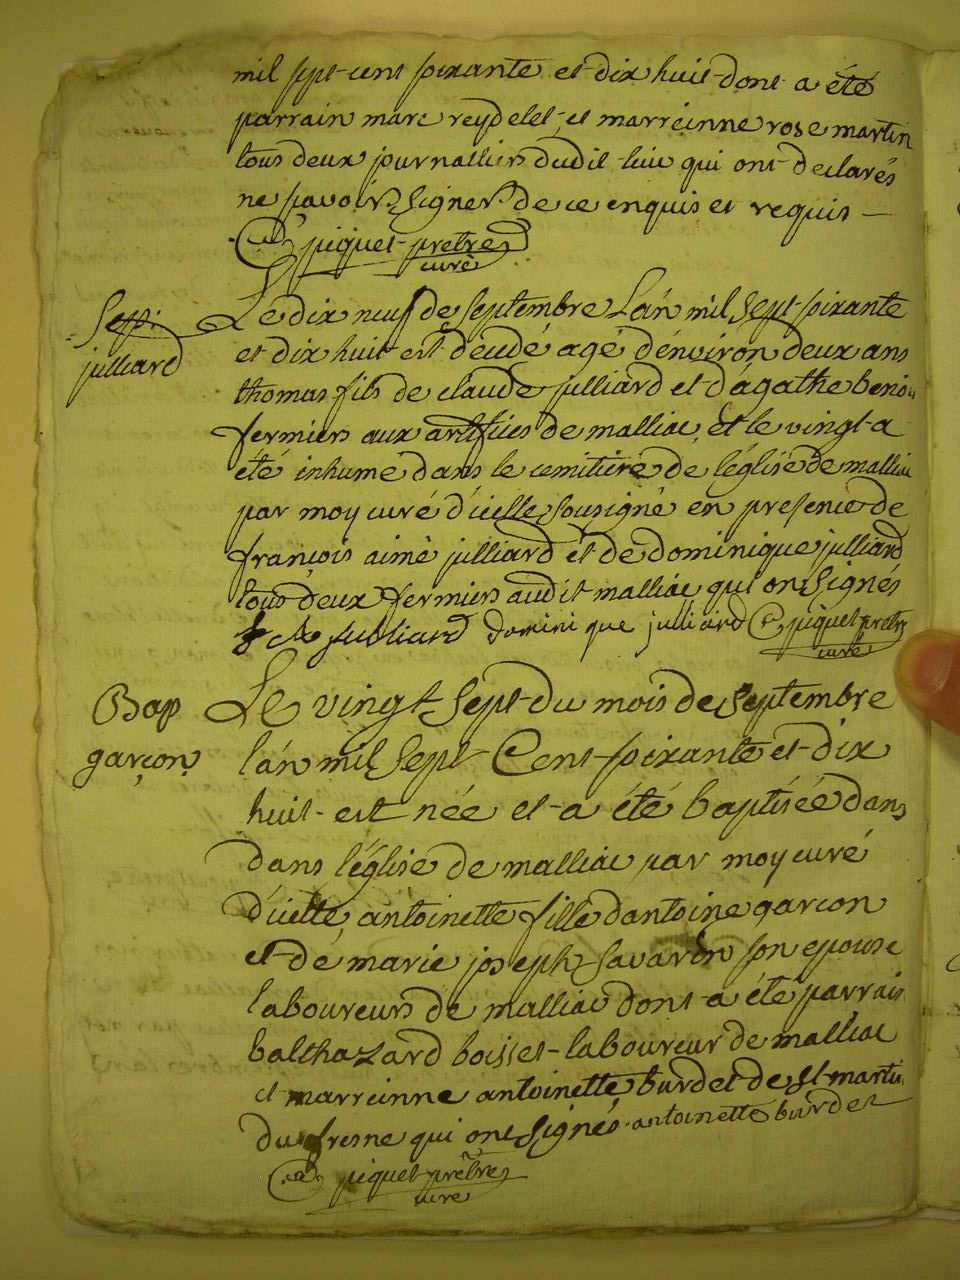 mil sept cent soixante et dix huit dont a été
parrain marc reydelet et marreinne rose martin
tous deux journalliers dudit lieu qui ont declarés
ne savoir signer de ce enquis et requis
piquet pretre
curé
Sep:
julliard
Le dix neuf de septembre L'an mil sept soixante
et dix huit est décédé agé d'environ deux ans
thomas fils de claude julliard et d'agathe
fermiers aux artifices de malliac, et le vingt a
été inhumé dans le cemitiere de l'église de malliac
par moy curé d'icelle sousigné en presence de
françois aimé julliard et de dominique julliard
tous deux fermiers audit malliac qui on signés
julliard dominique julliard piquet pretre
curé
Bap
garçon
Le vingt sept du mois de septembre
l'an mil sept Cent soixante et dix
huit est née et a été baptisée dans
dans l'église de malliac par moy curé
d'icelle, antoinette fille dantoine garcon
et de marie joseph savarin son epouse
laboureurs de malliac dont a été parrain
balthazard boisset laboureur de malliac
et marreinne antoinette burdet de st martin
du fresne qui ont signés. antoinette burdet
piquet prêtre
curé